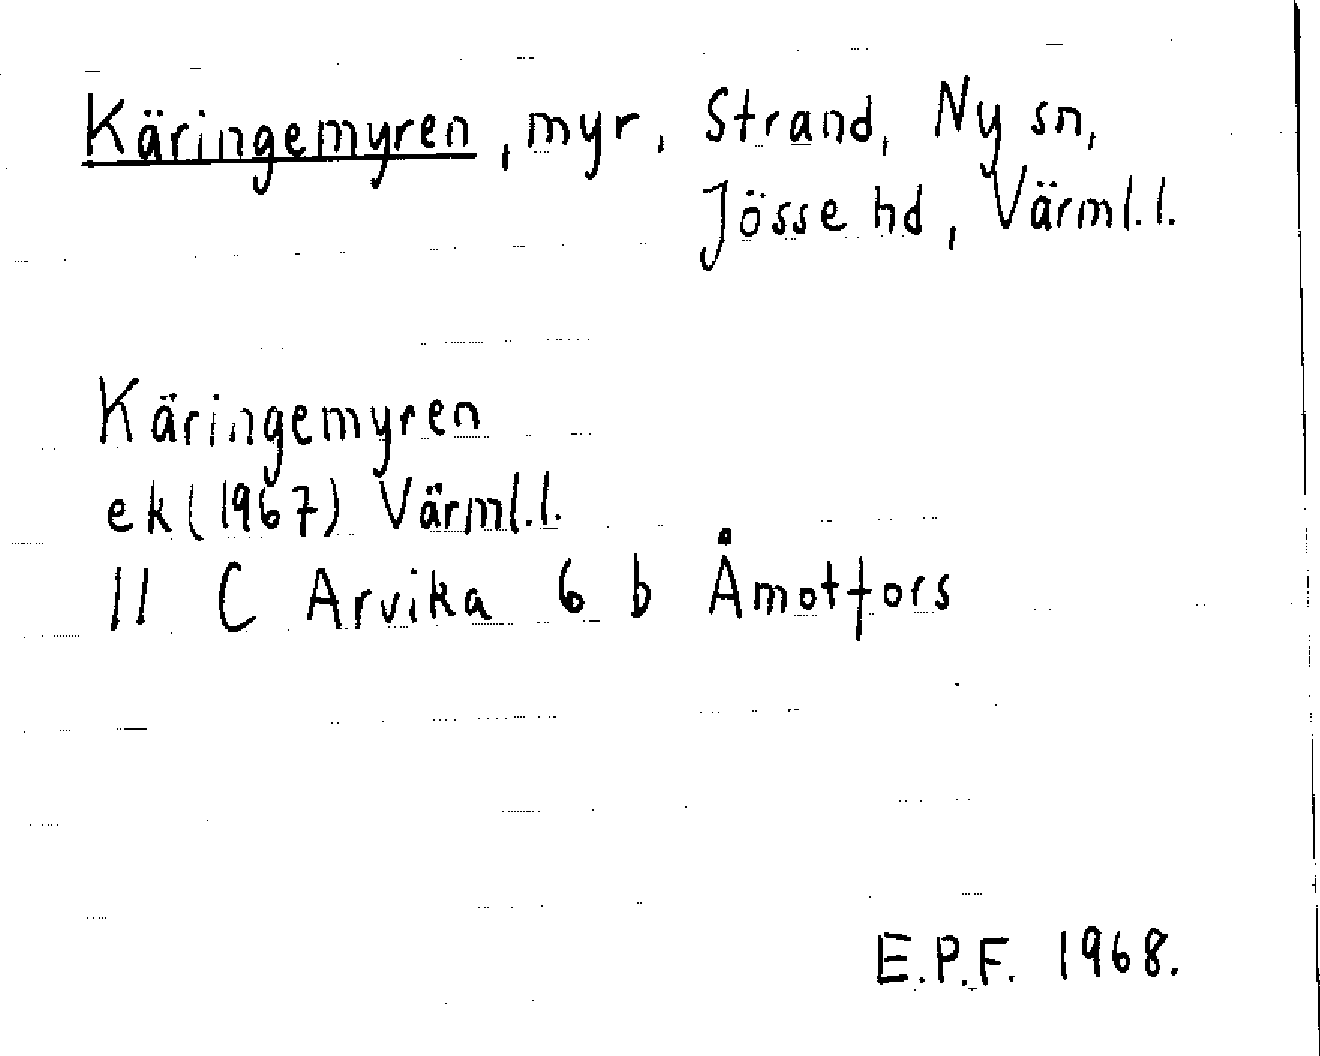 Käringemyren, myr, Strand, Ny sn,
Jösse hd, Värml. l.
Käringemyren
ek (1967) Värml. l.
11 C Arvika 6 b Åmotfors
E.P.F. 1968.